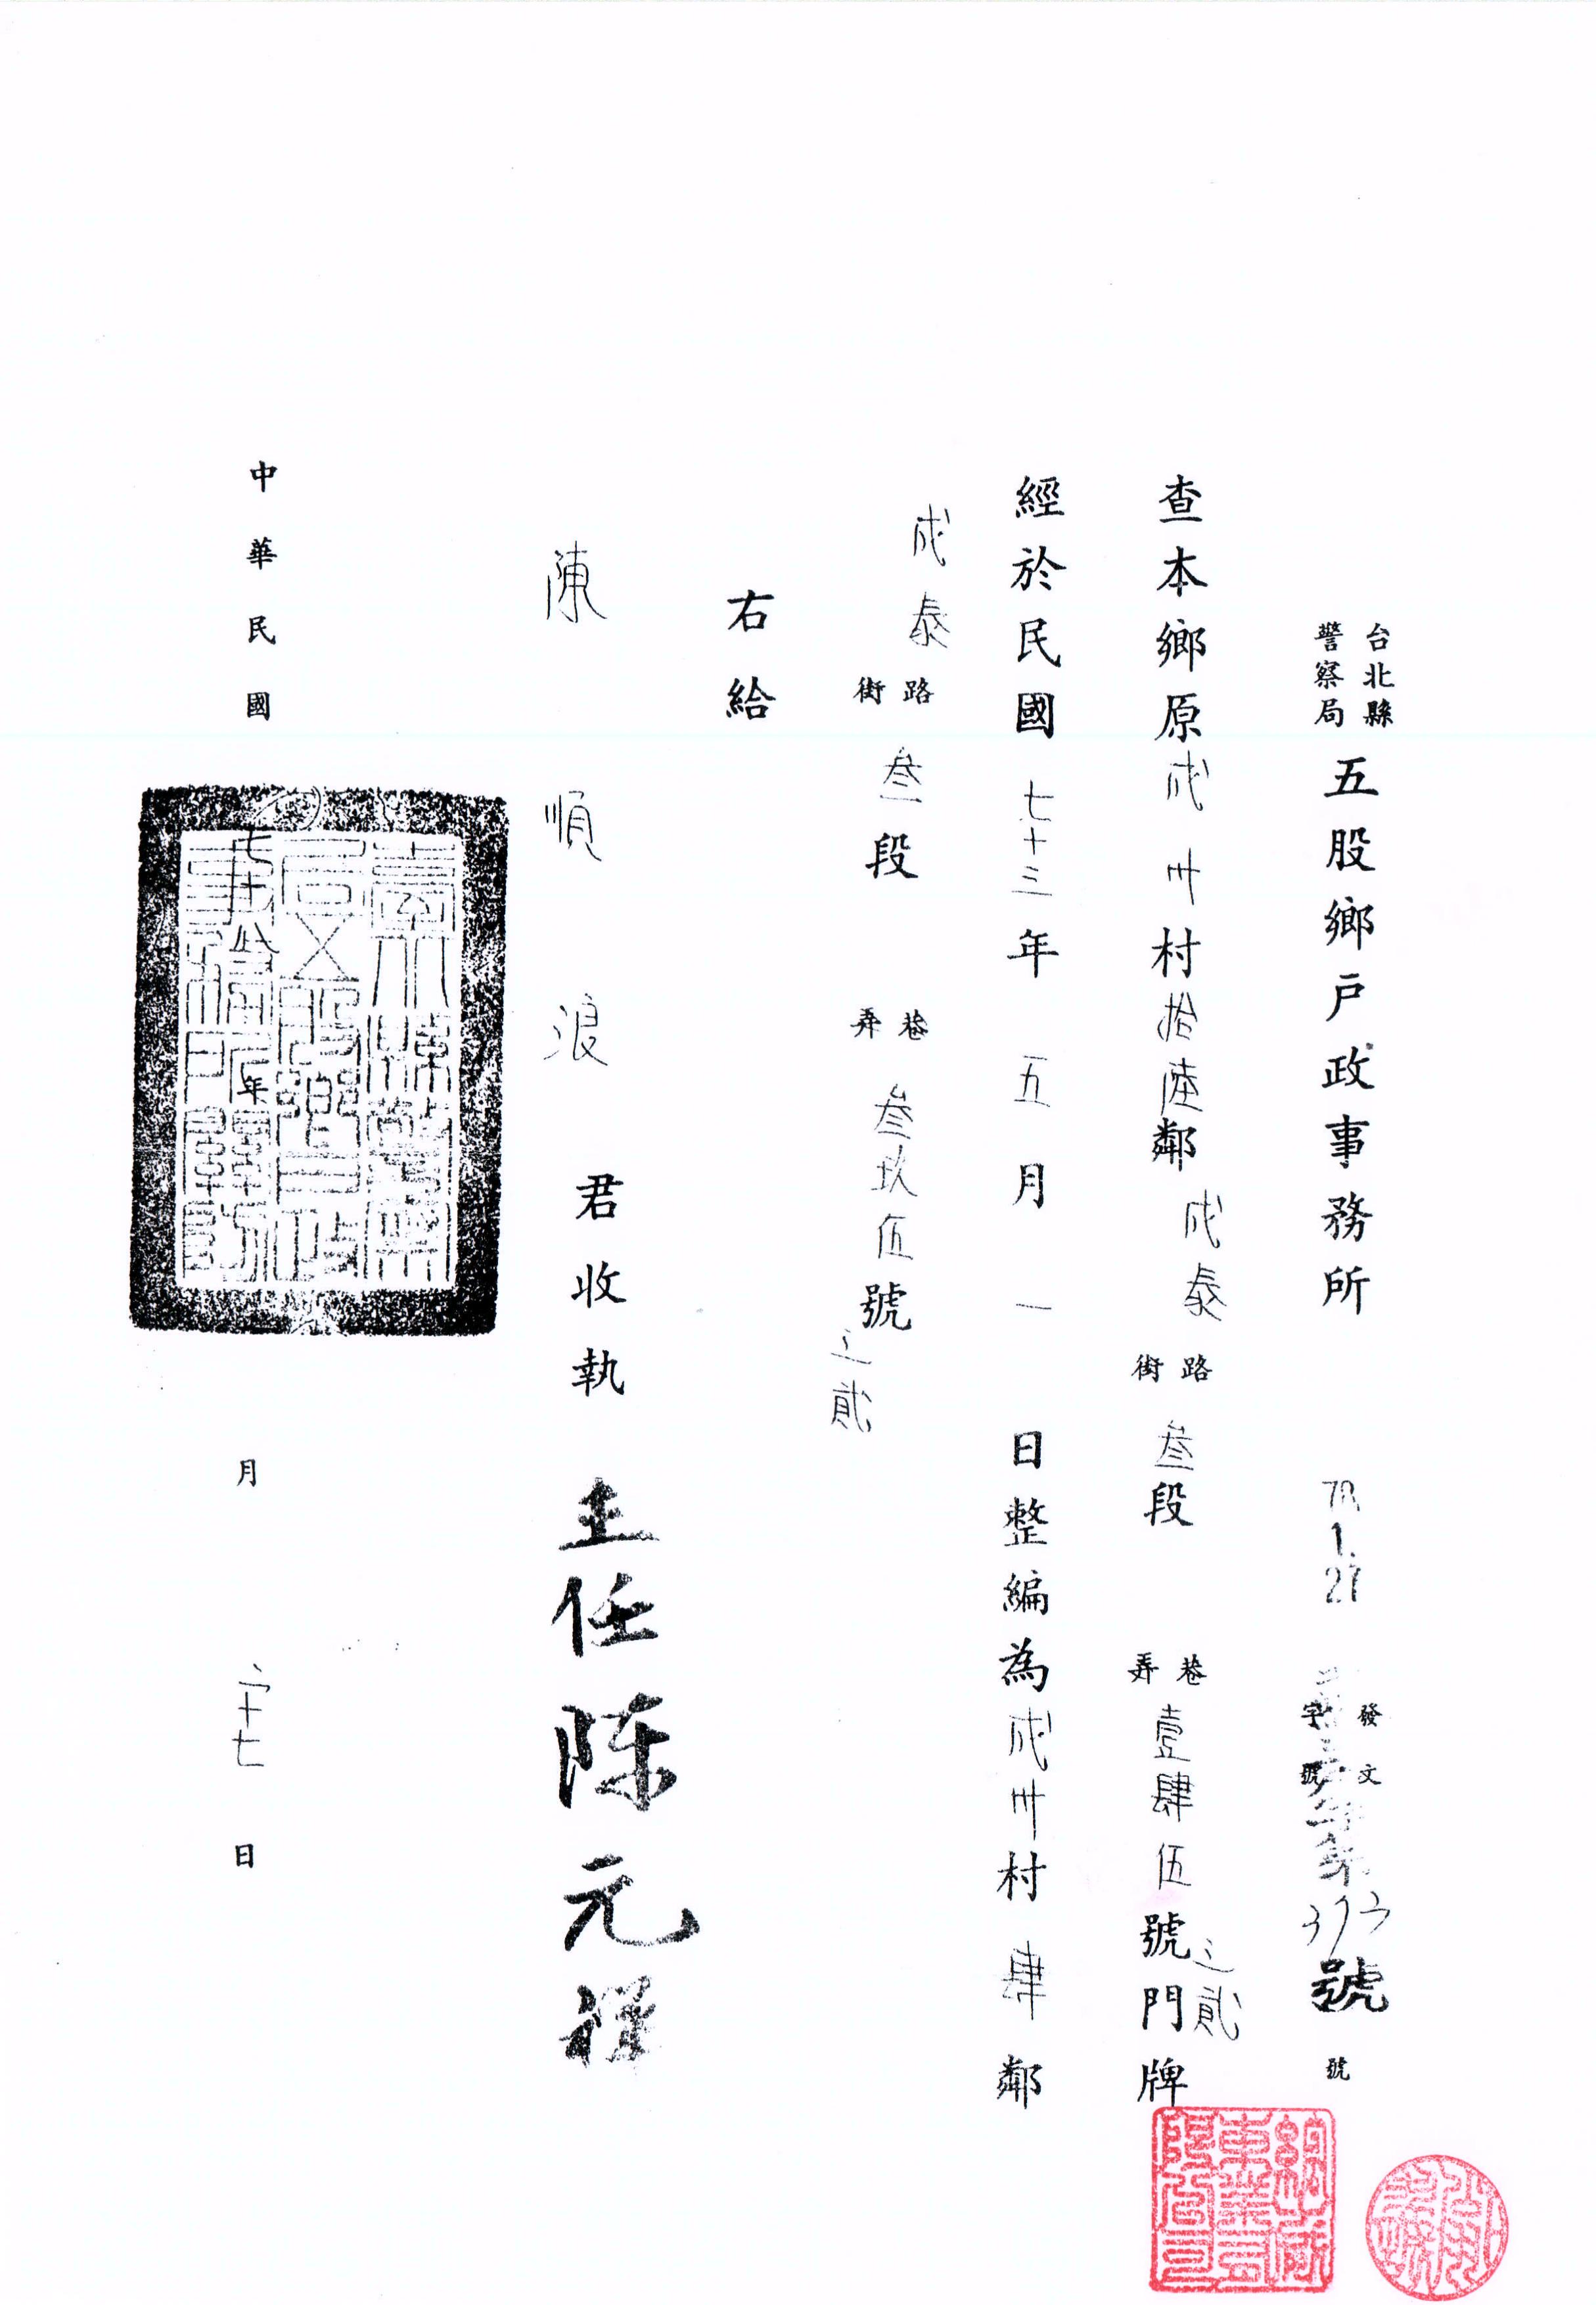 台北縣
警察局
五股鄉戶政事務所
78. 1. 27
發文
字號
393號
號
查本鄉原成州村拾陸鄰成泰路街叁段巷弄壹肆伍號之貳門牌
經於民國七十三年五月一日整編為成州村肆鄰
成泰路街叁段巷弄叁玖伍號之貳
右給
陳順浪君收執
主任陳元禪
中華民國七十八年月二十七日